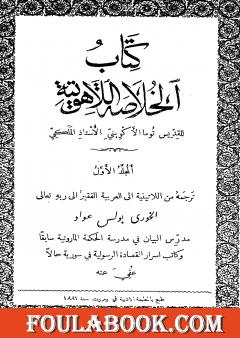 كتاب
الخلاصة اللاهوتية
للقديس توما الاكويني الأستاذ الملكي
المجلد الأول
ترجمة من اللاتينية الى العربية الفقير الى ربه تعالى
الخوري بولس عواد
مدرس البيان في مدرسة الحكمة المارونية سابقا
وكاتب اسرار القصادة الرسولية في سورية حالاً
عفي عنه
طبع بالمطبعة الادبية في بيروت سنة ١٨٨١
FOULABOOK.COM